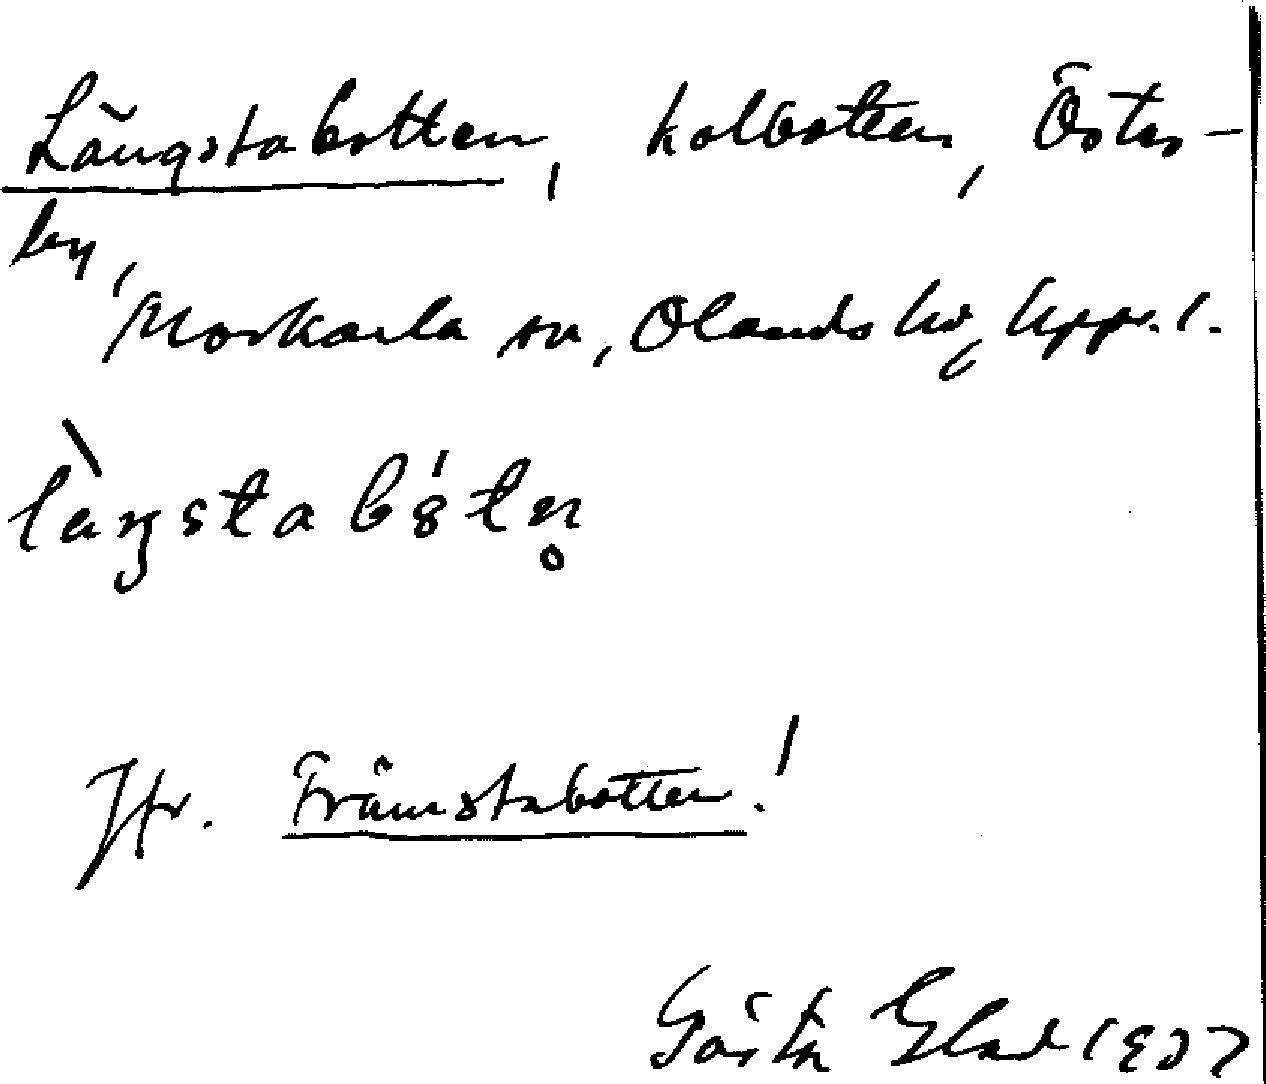 Långstabotten, kolbotten, Öster-
by,
Morkarla sn, Olands hd, Uppl.
làŋstabȣ́tn̥
Jfr. Främstabotten!
Gösta